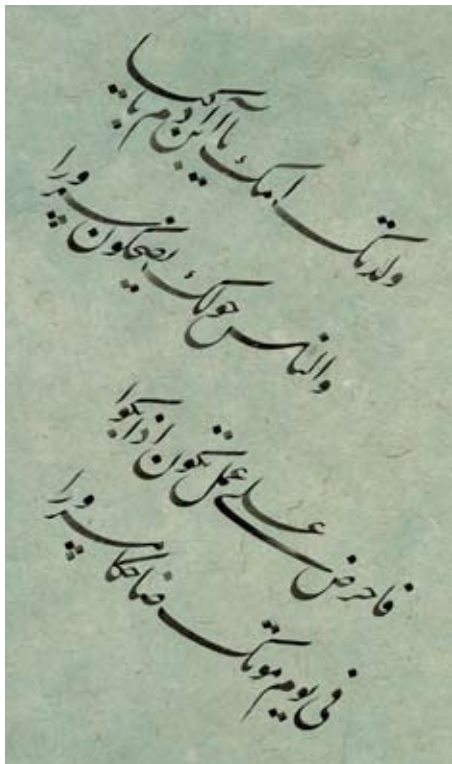 ولدتك امك يا ابن آدم باكيا
والناس حولك يضحكون سرورا
فاحرض على عمل تكون اذا بكوا
في يوم موتك ضاحكا مسرورا